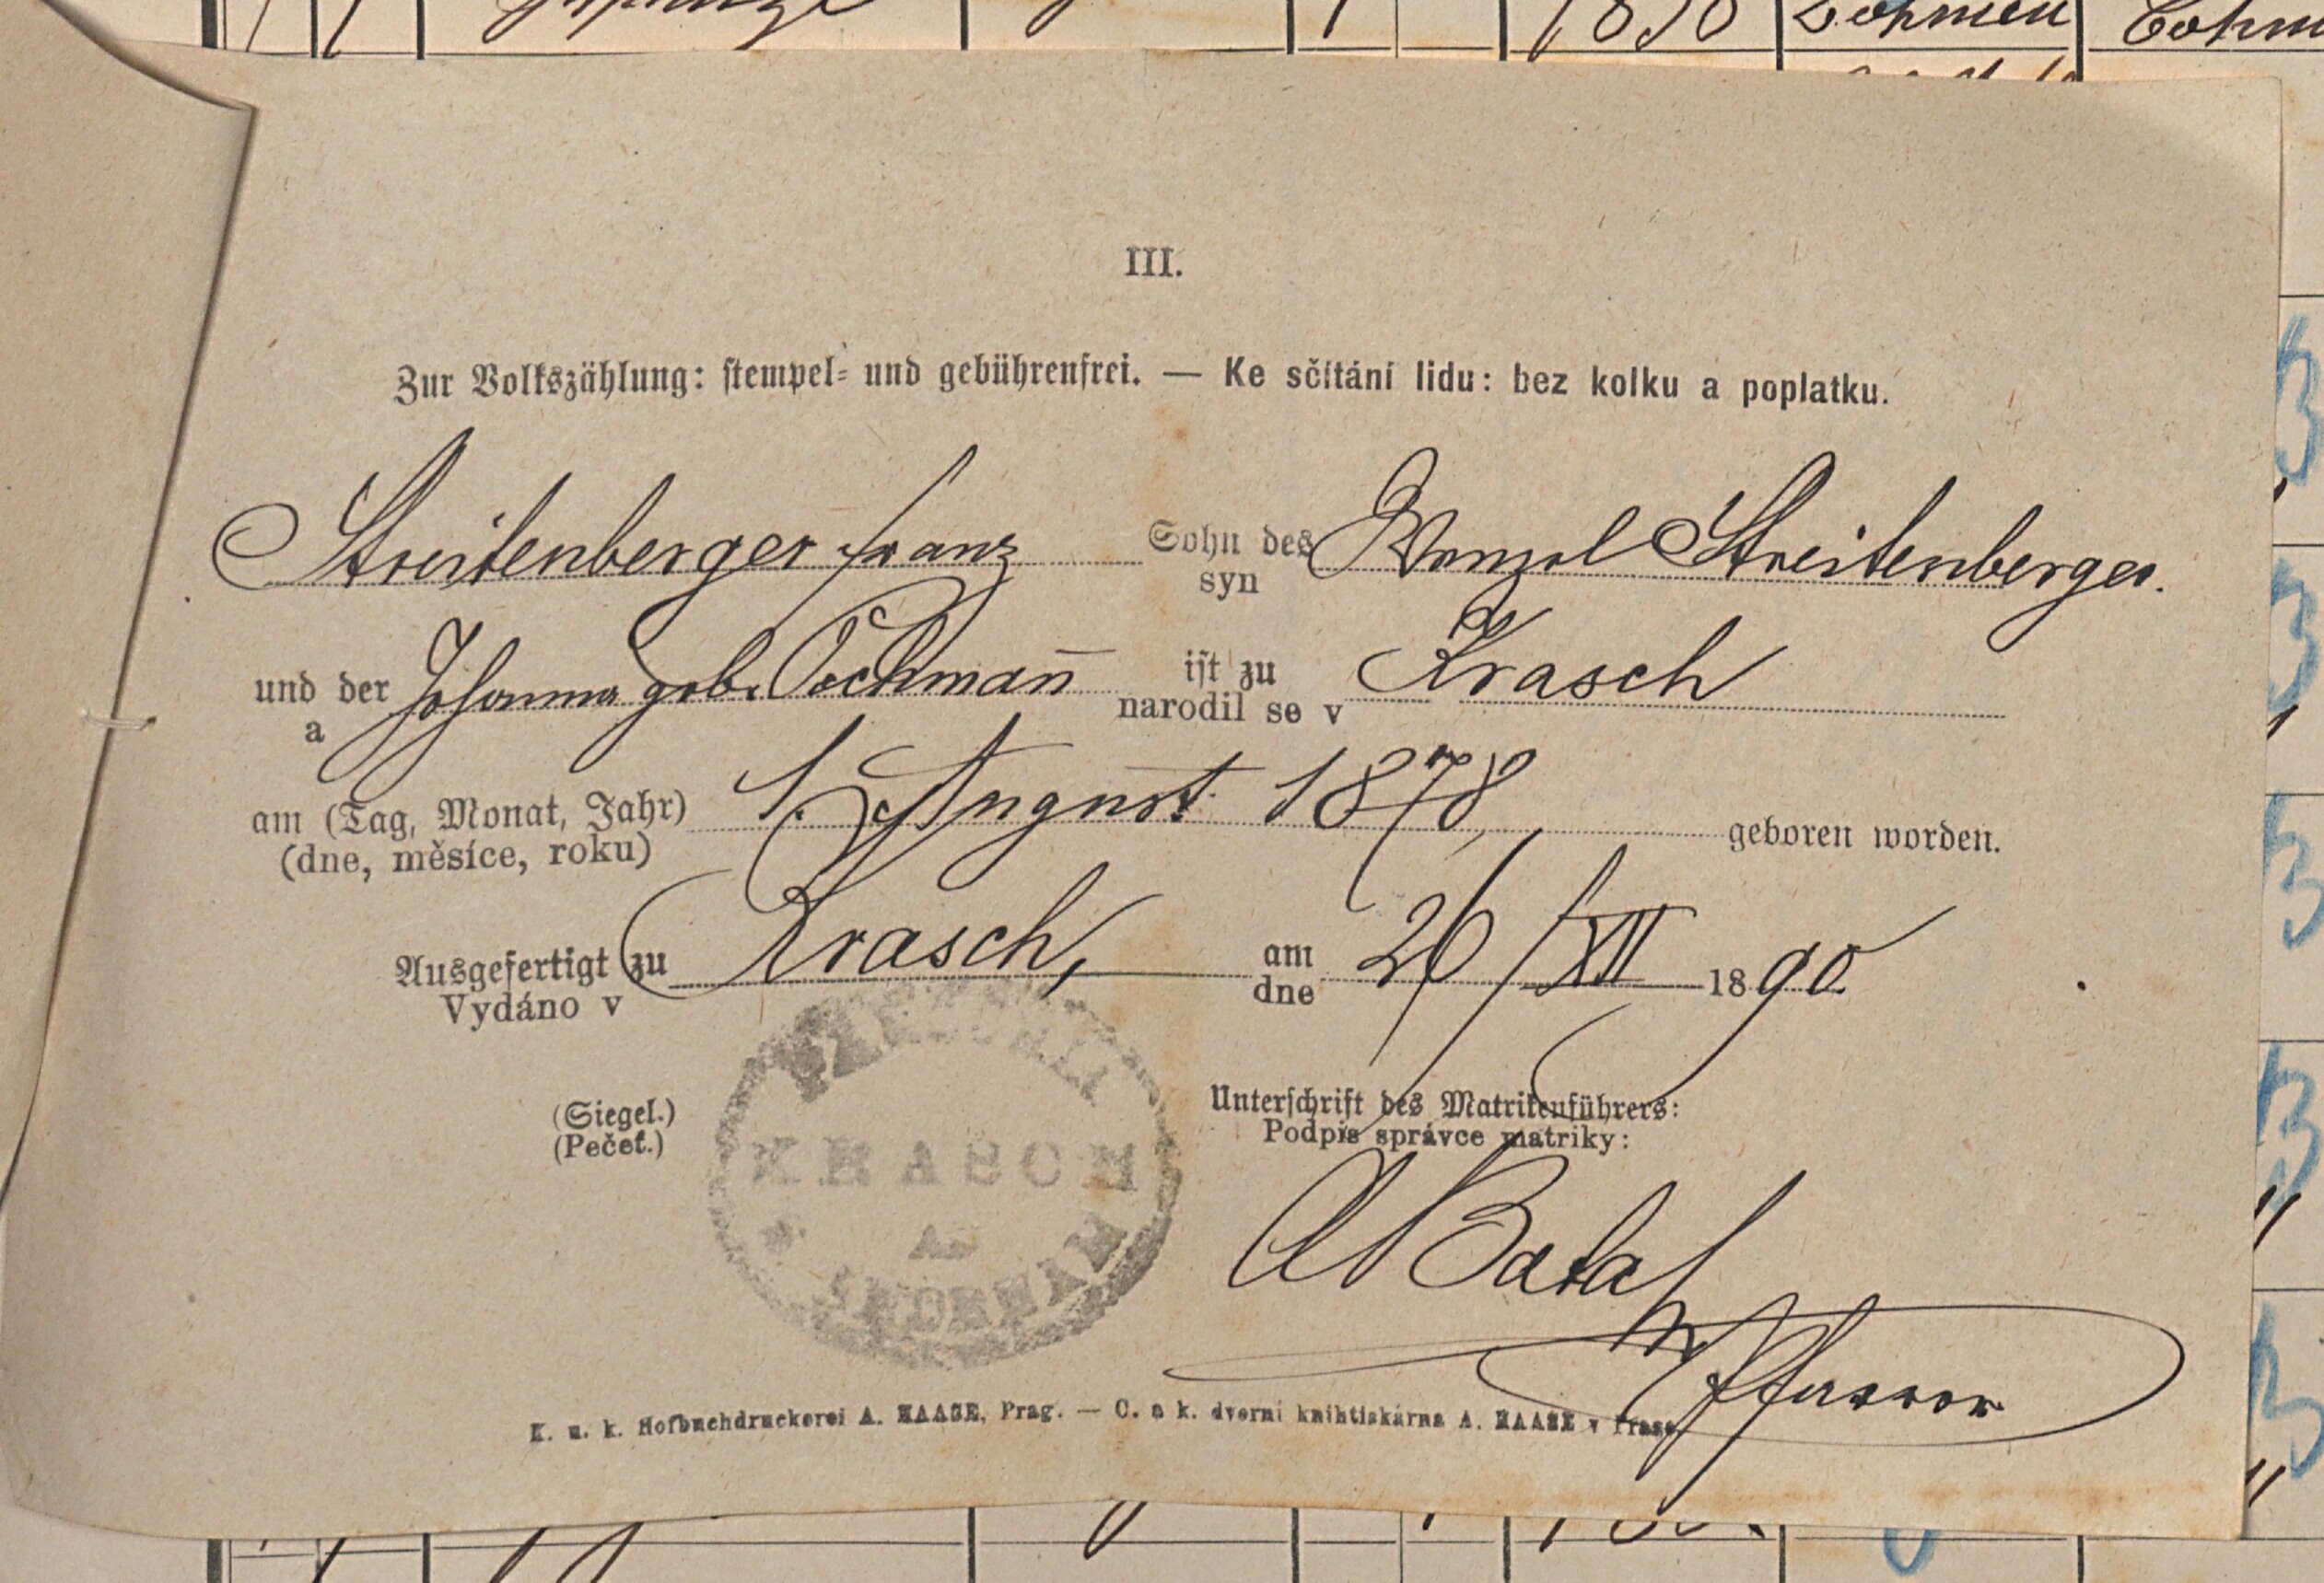 1890 Böhmen Böhm
III.
Zur Volkszählung: stempel- und gebührenfrei. — Ke sčítání lidu: bez kolku a poplatku.
Streitenberger Franz Sohn des Wenzel Streitenberger.
syn
und der Johanna geb. Pechman̄ ist zu Krasch
a narodil se v
am (Tag, Monat, Jahr) 1. August 1878, geboren worden.
(dne, měsíce, roku)
Ausgefertigt zu Krasch, am 26/XII 1890
Vydáno v dne
(Siegel.) Unterschrift des Matrikenführers:
(Pečeť.) Podpis správce matriky:
KRASCH
Pfarrer
K. u. k. Hofbuchdruckerei A. HAASE, Prag. — C. a k. dvorní knihtiskárna A. HAASE v Praze